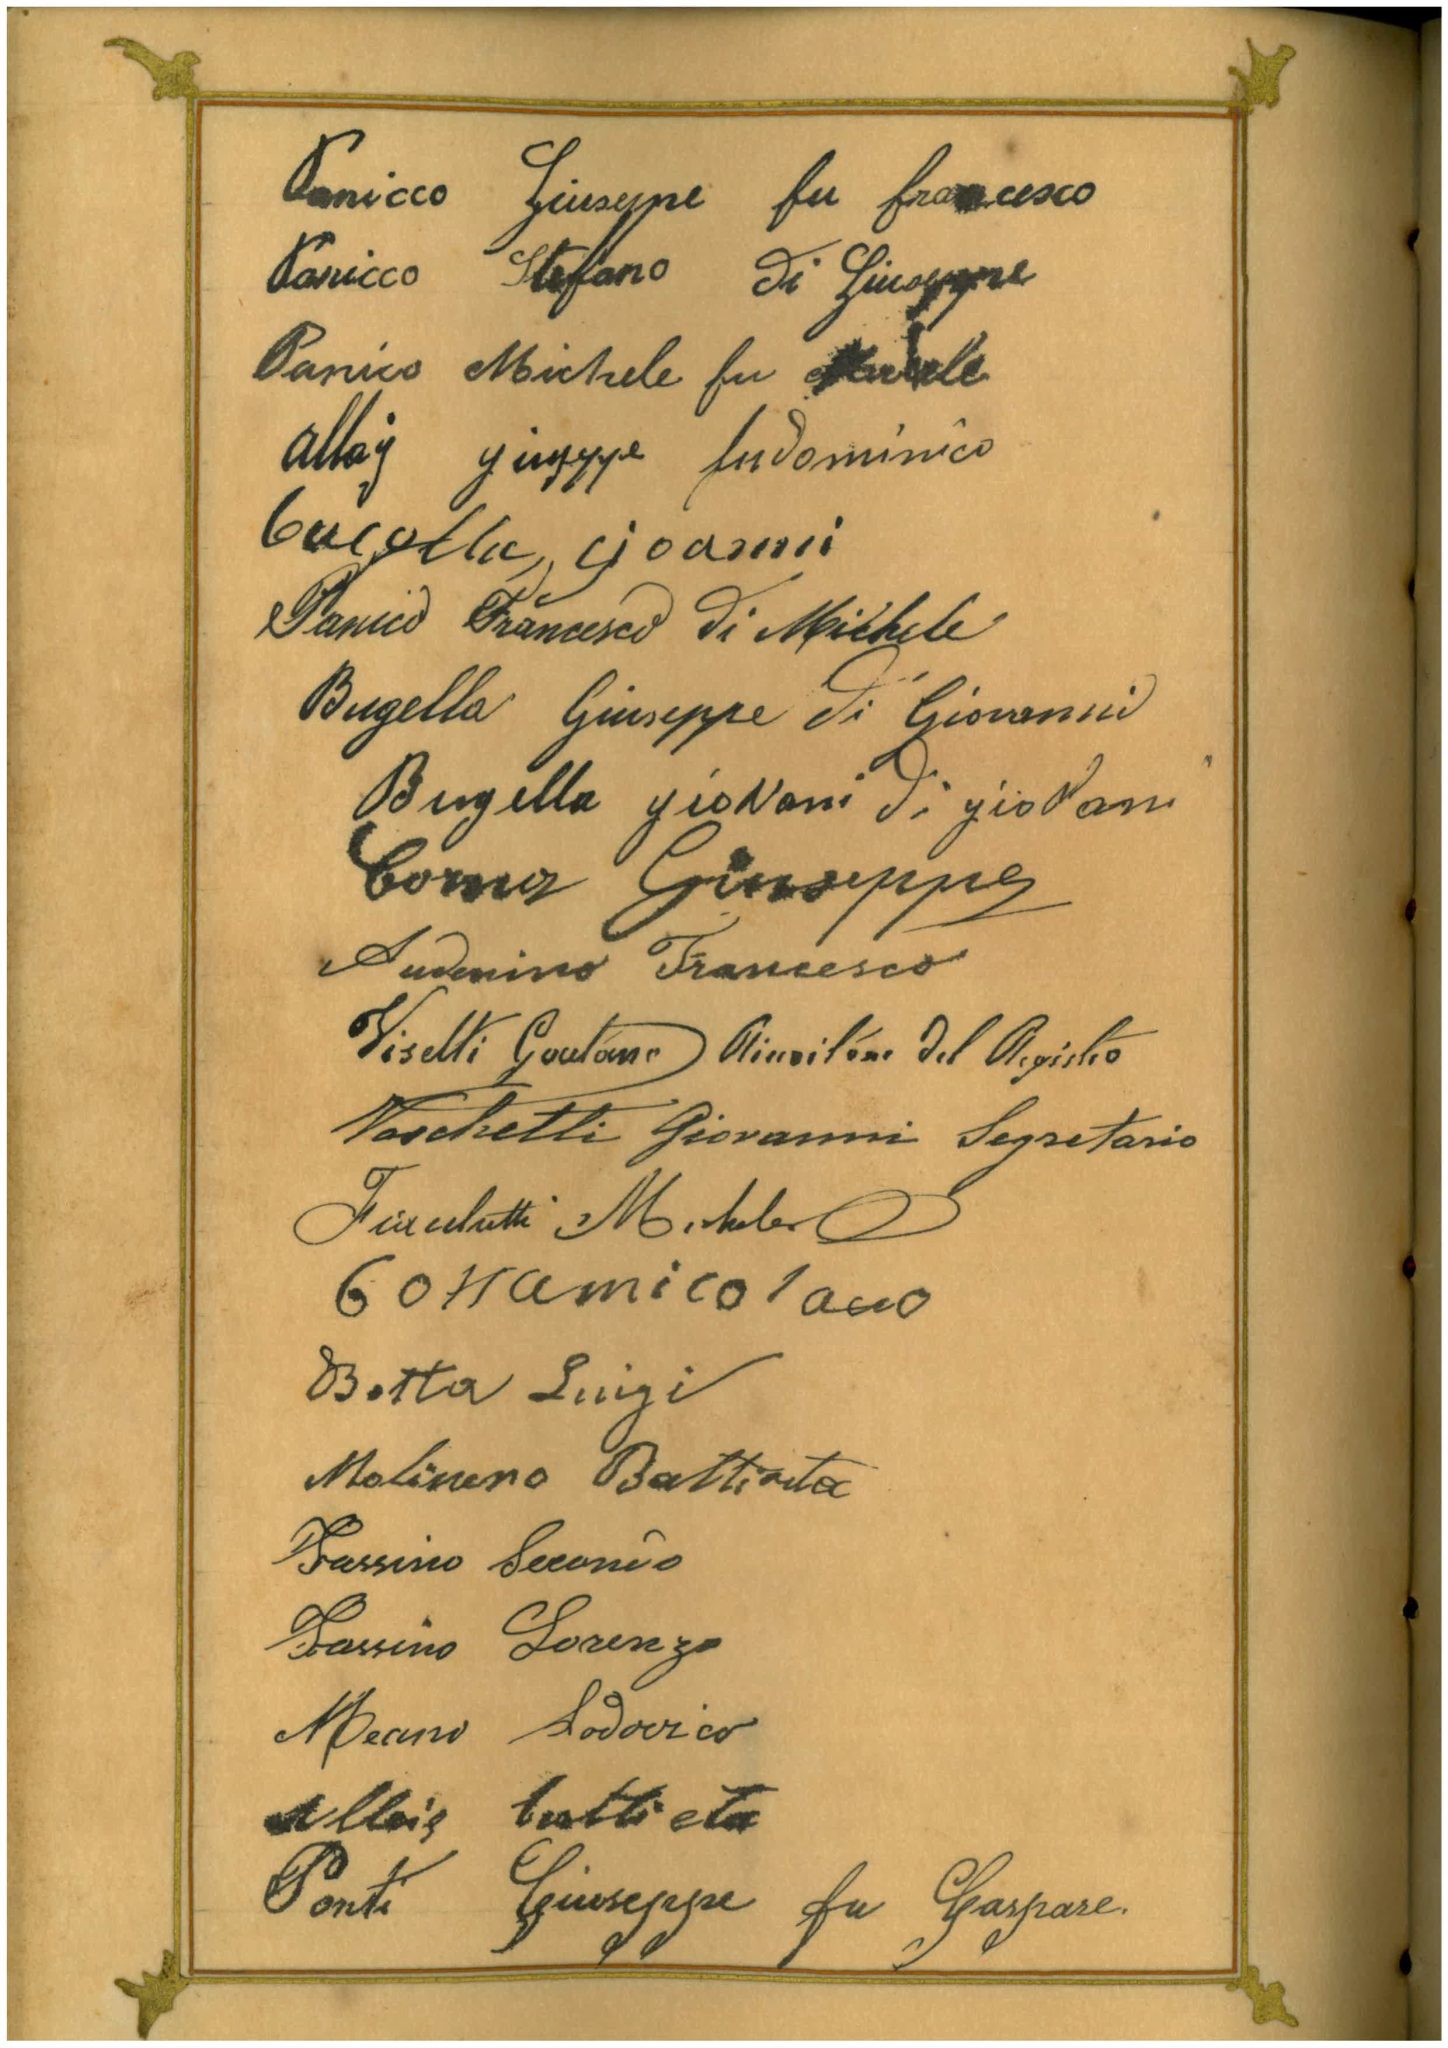 Panicco Giuseppe fu francesco
Panicco Stefano di Giuseppe
Panico Michele fu
giuseppe fudominico
gioanni
Panico Francesco di Michele
Bugella Giuseppe di Giovanni
Bugella gioVani di gioVani
Giuseppe
Audenino Francesco
Viselti Gaetano Ricevitore del Registro
Vaschetti Giovanni Segretario
Michele
Botta Luigi
Molinero Battista
Fassino Secondo
Fassino Lorenzo
Meano Lodovico
battista
Ponti Giuseppe fu Gaspare.